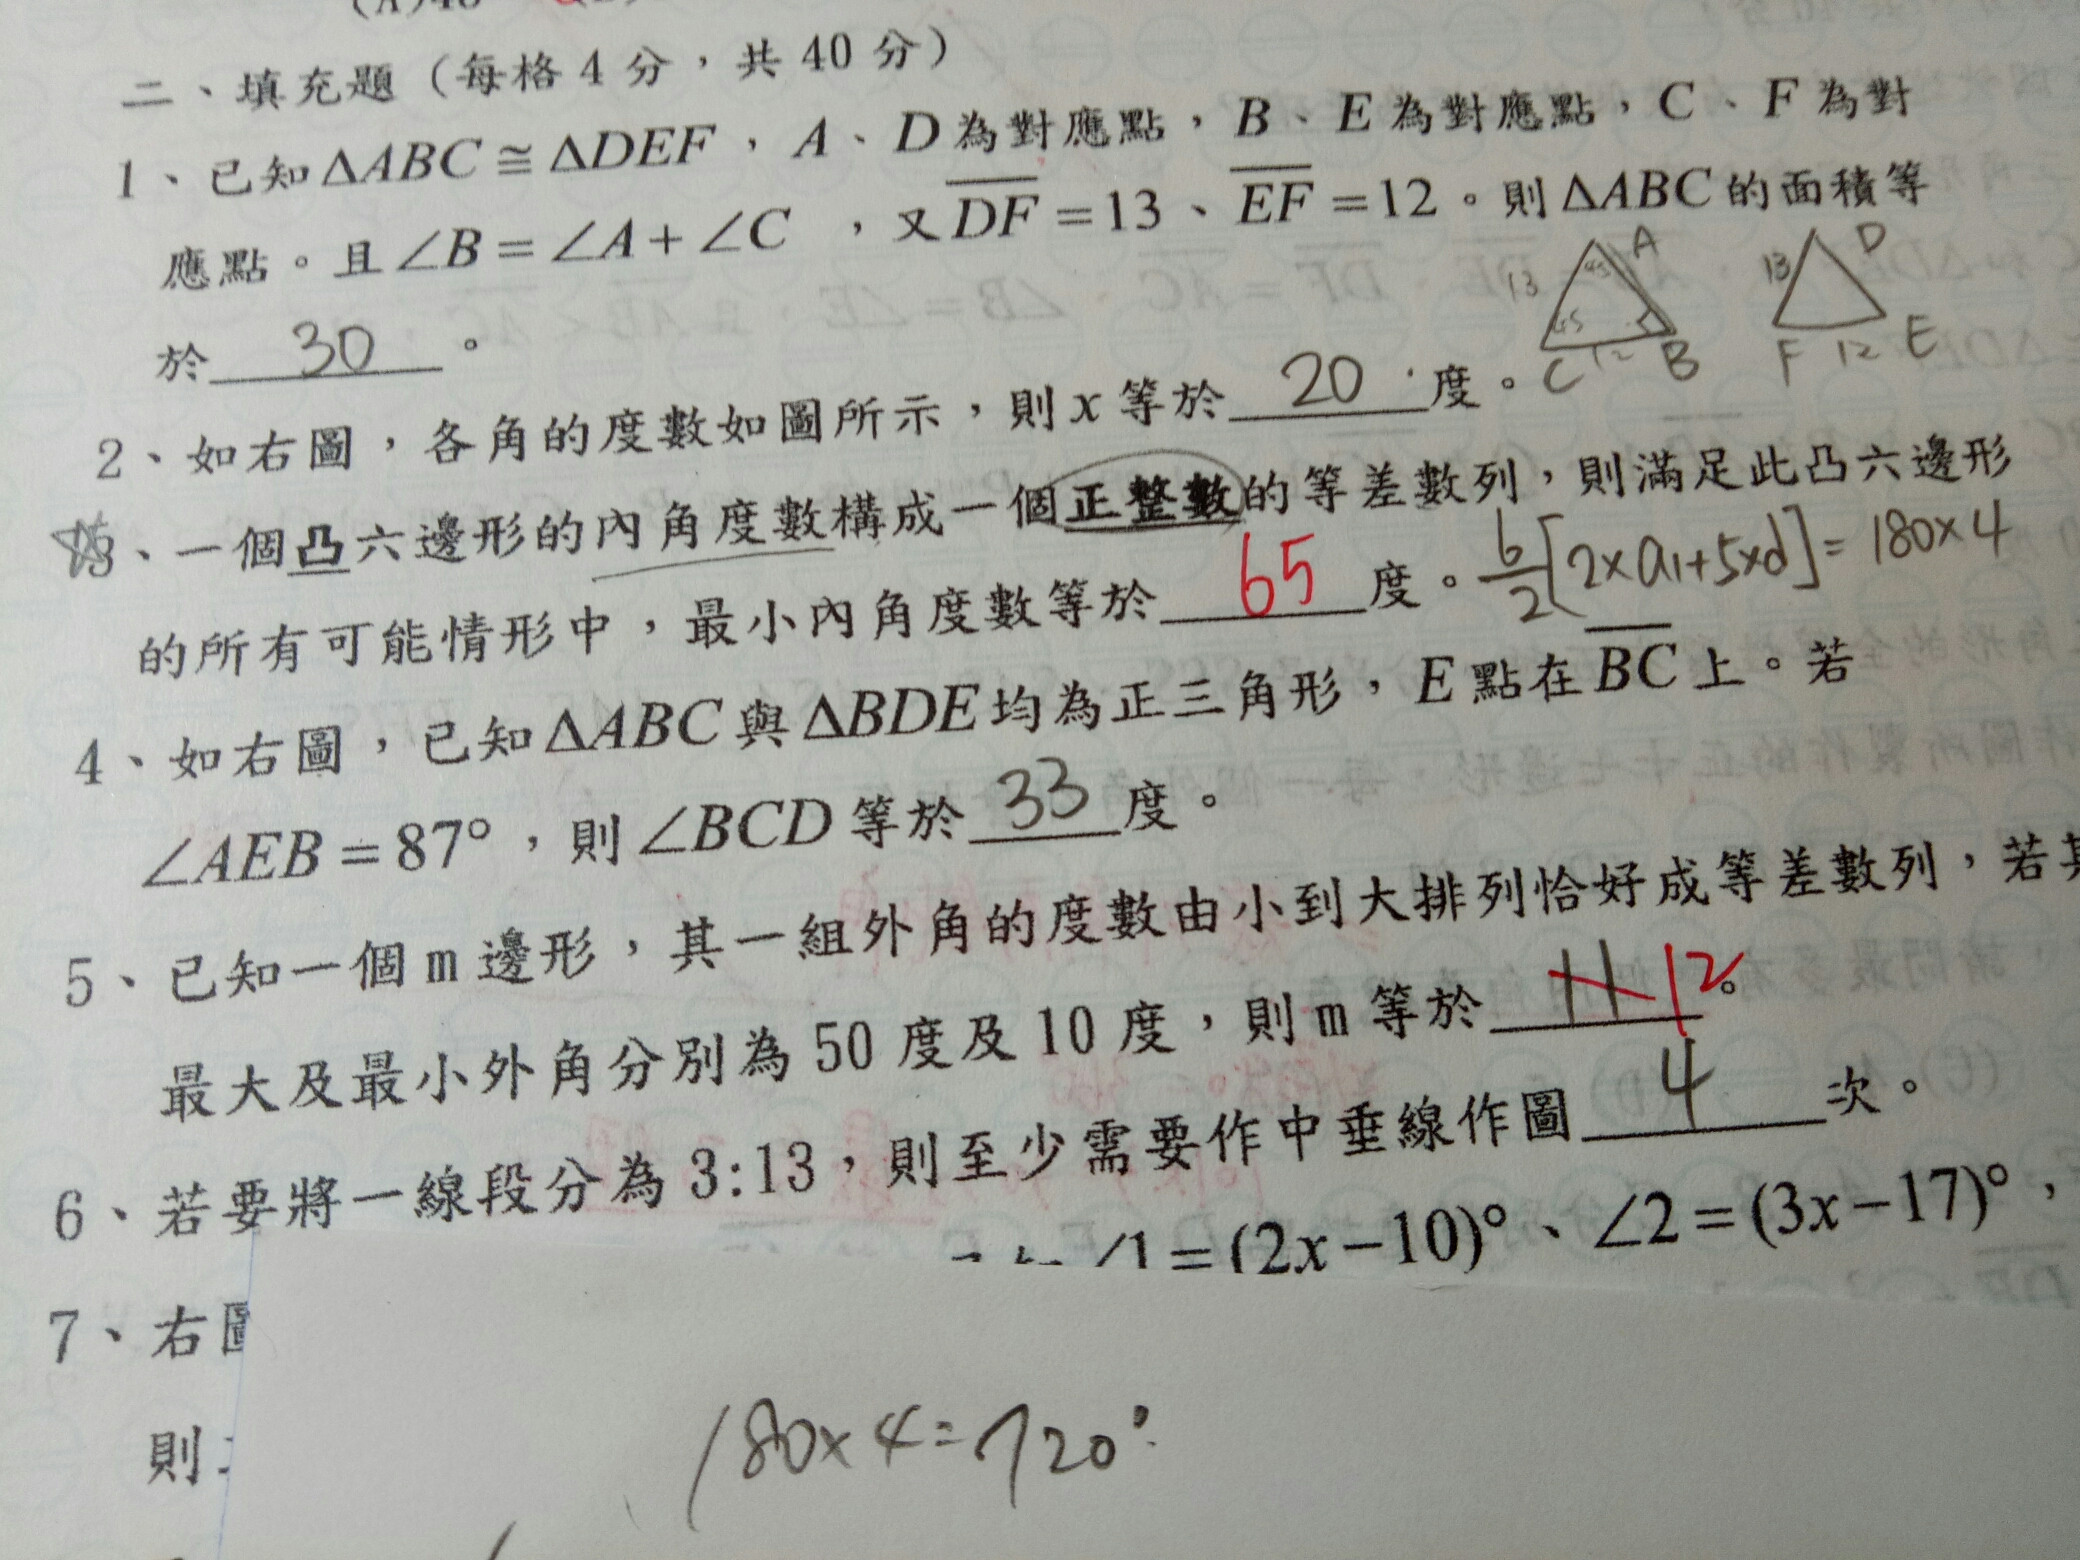 二、填充題（每格 4 分，共 40 分）
1、已知 ΔABC ≅ ΔDEF，A、D 為對應點，B、E 為對應點，C、F 為對
應點。且 ∠B = ∠A + ∠C ，又 DF = 13、EF = 12。則 ΔABC 的面積等
於 30 。
13 45 A 45 C 12 B
13 D F 12 E
2、如右圖，各角的度數如圖所示，則 x 等於 20 度。
3、一個凸六邊形的內角度數構成一個正整數的等差數列，則滿足此凸六邊形
的所有可能情形中，最小內角度數等於 65 度。 6/2[2×a1+5×d]=180×4
4、如右圖，已知 ΔABC 與 ΔBDE 均為正三角形，E 點在 BC 上。若
∠AEB = 87°，則 ∠BCD 等於 33 度。
5、已知一個 m 邊形，其一組外角的度數由小到大排列恰好成等差數列，若其
最大及最小外角分別為 50 度及 10 度，則 m 等於 11 12。
6、若要將一線段分為 3:13，則至少需要作中垂線作圖 4 次。
7、右圖 ∠1 = (2x−10)°、∠2 = (3x−17)°，
則
180×4=720°